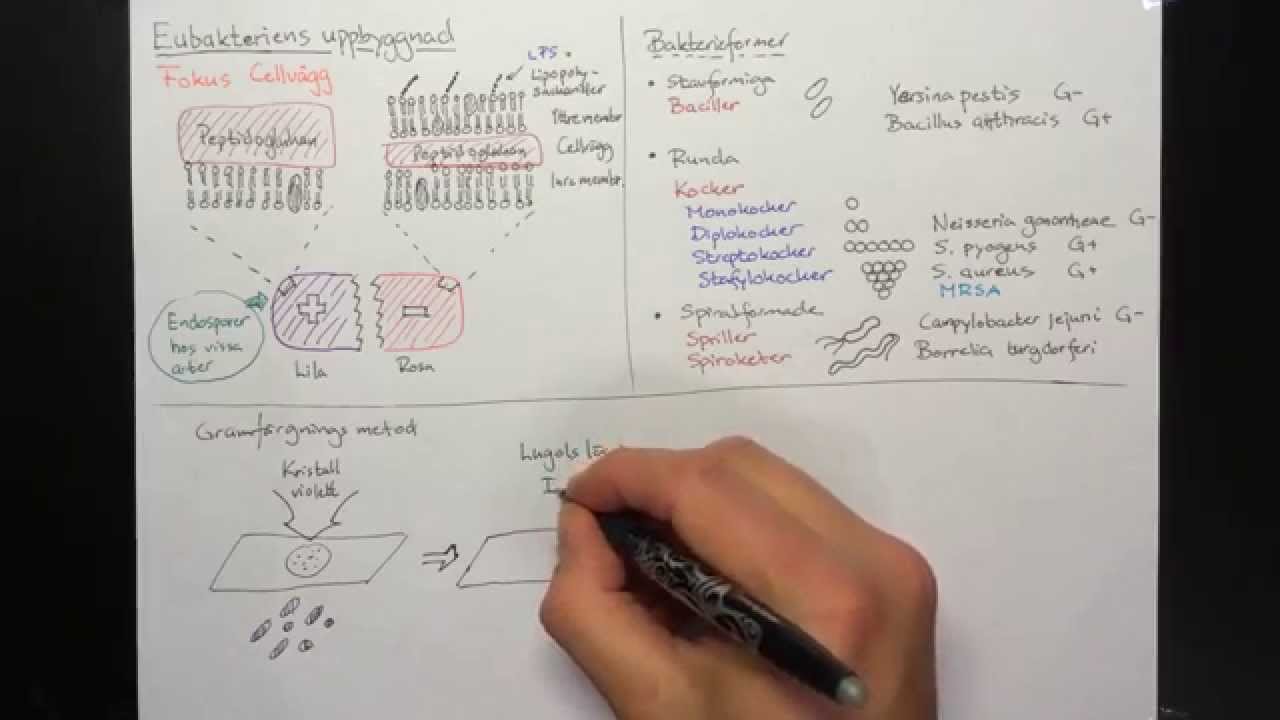 Eubakteriens uppbyggnad
Fokus Cellvägg
Peptidoglukan
LPS
Lipopoly-
sackarider
Yttre membr.
Cellvägg
Peptidoglukan
Inre membr.
Endosporer
hos vissa
arter
+
Lila
−
Rosa
Bakterieformer
• Stavformiga
Baciller
Yersina pestis G-
Bacillus anthracis G+
• Runda
Kocker
Monokocker
Diplokocker
Neisseria gonorrheae G-
Streptokocker
S. pyogens G+
Stafylokocker
S. aureus G+
MRSA
• Spiralformade
Spriller
Campylobacter jejuni G-
Spiroketer
Borrelia burgdorferi
Gramfärgnings metod
Kristall
violett
Lugols